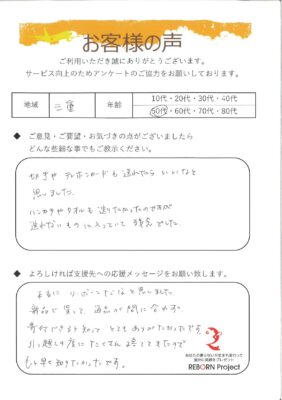 お客様の声
ご利用いただき誠にありがとうございます。
サービス向上のためアンケートのご協力をお願いしております。
地域 三重 年齢 10代・20代・30代・40代
50代・60代・70代・80代
◆ ご意見・ご要望・お気づきの点がございましたら
どんな些細な事でもご教示ください。
切手やテレホンカードも送れたらいいなと
思いました。
ハンカチやタオルも送りたかったのですが
送れないものに入っていて残念でした。
◆ よろしければ支援先への応援メッセージをお願い致します。
まさにリボーンだなと思いました。
新品で買って 返品が間に合わず、
寄付できると知って とてもありがたかったです。
引っ越しの度にたくさん捨ててきたので
もっと早く知りたかったです。
あなたの要らないが生まれ変わって
誰かに笑顔をプレゼント
REBORN Project